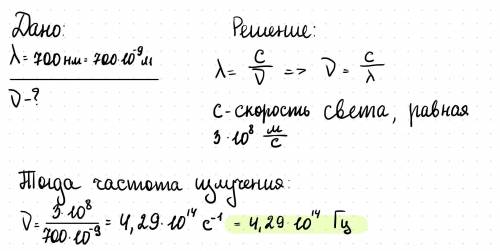 Дано:
λ = 700 нм = 700·10⁻⁹ м
ν - ?
Решение:
λ = c/ν => ν = c/λ
c - скорость света, равная
3·10⁸ м/с
Тогда частота излучения:
ν = 3·10⁸/700·10⁻⁹ = 4,29·10¹⁴ с⁻¹ = 4,29·10¹⁴ Гц